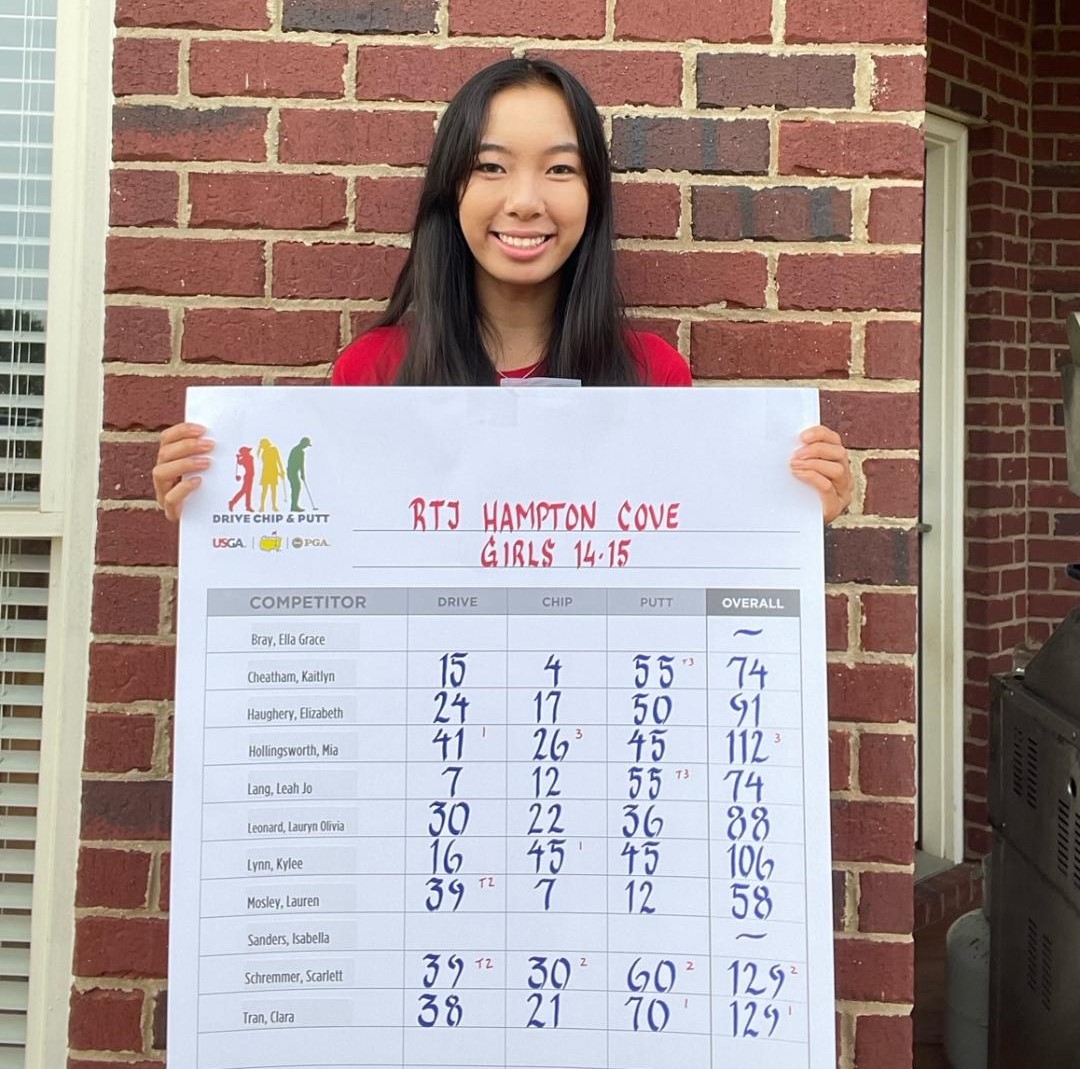 DRIVE CHIP & PUTT
USGA. PGA.
RTJ HAMPTON COVE
GIRLS 14-15
COMPETITOR DRIVE CHIP PUTT OVERALL
Bray, Ella Grace ~
Cheatham, Kaitlyn 15 4 55 T3 74
Haughery, Elizabeth 24 17 50 91
Hollingsworth, Mia 41 1 26 3 45 112 3
Lang, Leah Jo 7 12 55 T3 74
Leonard, Lauryn Olivia 30 22 36 88
Lynn, Kylee 16 45 1 45 106
Mosley, Lauren 39 T2 7 12 58
Sanders, Isabella ~
Schremmer, Scarlett 39 T2 30 2 60 2 129 2
Tran, Clara 38 21 70 1 129 1